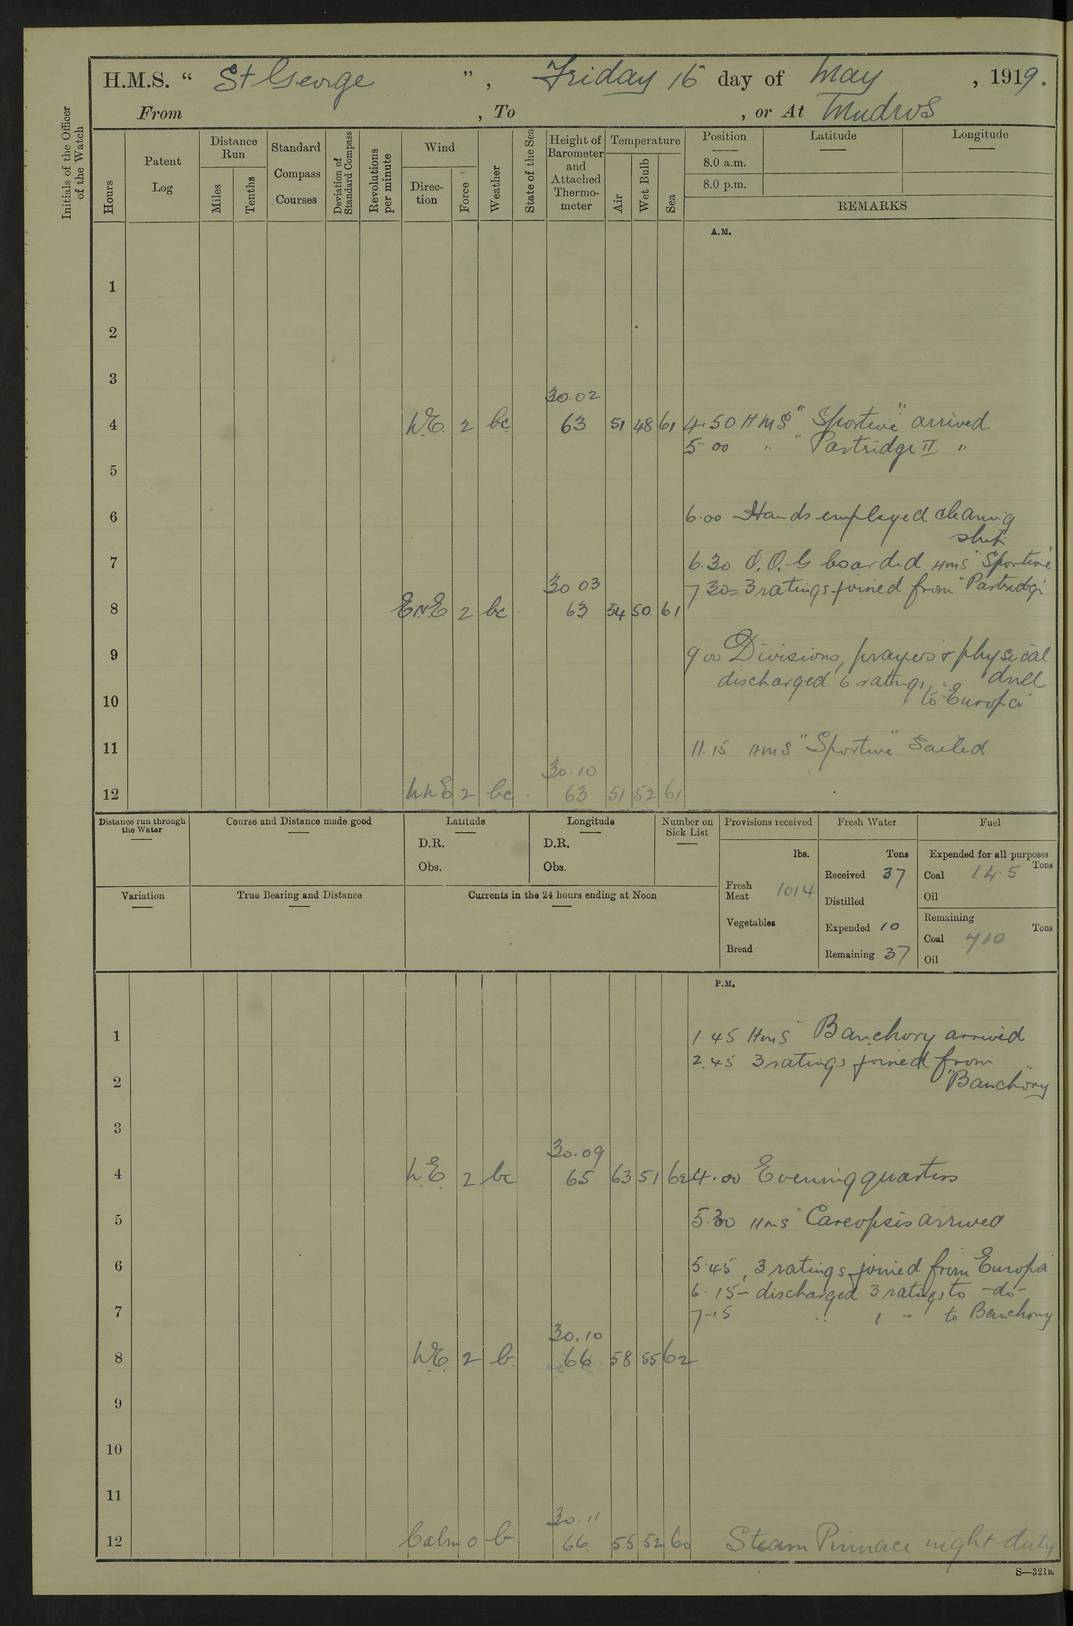 H.M.S. “ St George ”, Friday 16 day of May , 1919.
From , To , or At Mudros
Initials of the Officer of the Watch
Hours
Patent Log
Distance Run
Miles
Tenths
Standard Compass Courses
Deviation of Standard Compass
Revolutions per minute
Wind
Direction
Force
Weather
State of the Sea
Height of Barometer and Attached Thermometer
Temperature
Air
Wet Bulb
Sea
Position
Latitude
Longitude
8.0 a.m.
8.0 p.m.
REMARKS
A.M.
1
2
3
30.02
4 N.E. 2 bc 63 51 48 61 4.50 HMS "Sportive" arrived.
5 00 " " Partridge II "
5
6 6.00 Hands employed cleaning
ship
7 6.30 O.O.G boarded HMS "Sportive"
30 03
7 30 = 3 ratings joined from "Partridge"
8 E.N.E 2 bc 63 54 50 61
9 9 00 Divisions, prayers & physical
drill
discharged 6 ratings
10 to "Europa"
11 11.15 HMS "Sportive" Sailed
30.10
12 NNE 2 bc 63 51 52 61
Distance run through the Water
Course and Distance made good
Latitude
D.R.
Obs.
Longitude
D.R.
Obs.
Number on Sick List
Provisions received
lbs.
Fresh Meat 1014
Vegetables
Bread
Fresh Water
Tons
Received 37
Distilled
Expended 10
Remaining 37
Fuel
Expended for all purposes
Tons
Coal 14.5
Oil
Remaining
Tons
Coal 710
Oil
Variation
True Bearing and Distance
Currents in the 24 hours ending at Noon
P.M.
1 1.45 HMS "Banchory arrived
2.45 3 ratings joined from
2 "Banchory"
3
30.09
4 N.E. 2 bc 65 63 51 62 4.00 Evening quarters
5 5.30 HMS "Careopsis arrived
6 5.45, 3 ratings joined from Europa
6.15 - discharged 3 ratings to -do-
7 7-15 " 1 " to Banchory
30.10
8 N.E. 2 b. 66 58 55 62
9
10
11
30.11
12 Calm 0 b 66 55 52 60 Steam Pinnace night duty
S—321B.